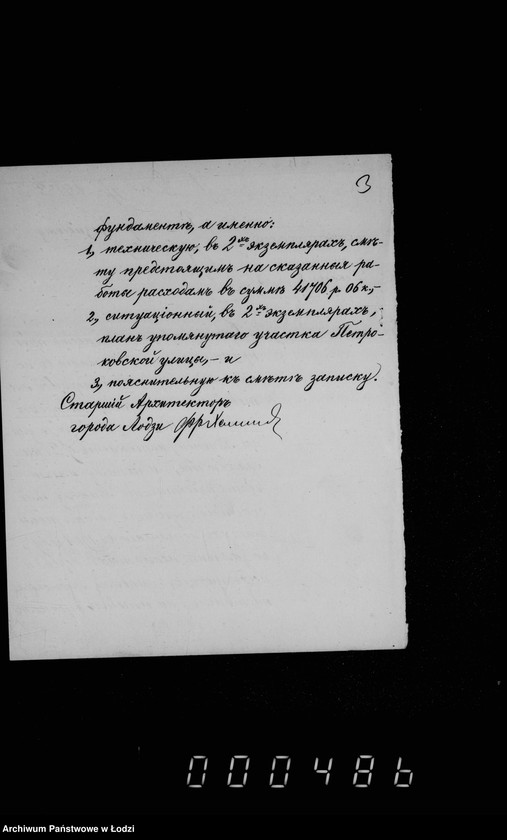 3
фундаментѣ, а именно:
1, техническую, въ 2хъ экземплярахъ, смѣ-
ту предстоящимъ на сказанныя ра-
боты расходамъ въ суммѣ 41706 р. 06 к,-
2, ситуаціонный, въ 2хъ экземплярахъ,
планъ упомянутаго участка Петро-
ковской улицы,- и
3, пояснительную къ смѣтѣ записку.
Старшій Архитекторъ
города Лодзи
000486
Archiwum Państwowe w Łodzi